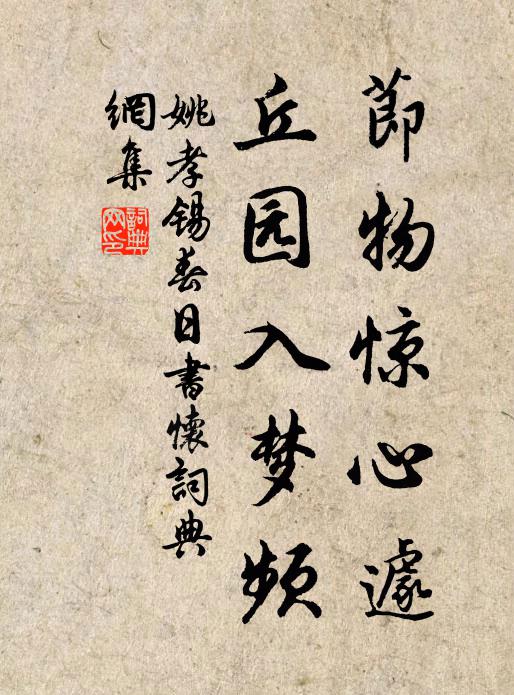 節物惊心遽
丘园入梦频
姚孝锡春日書懷詞典
網集
詞典网印